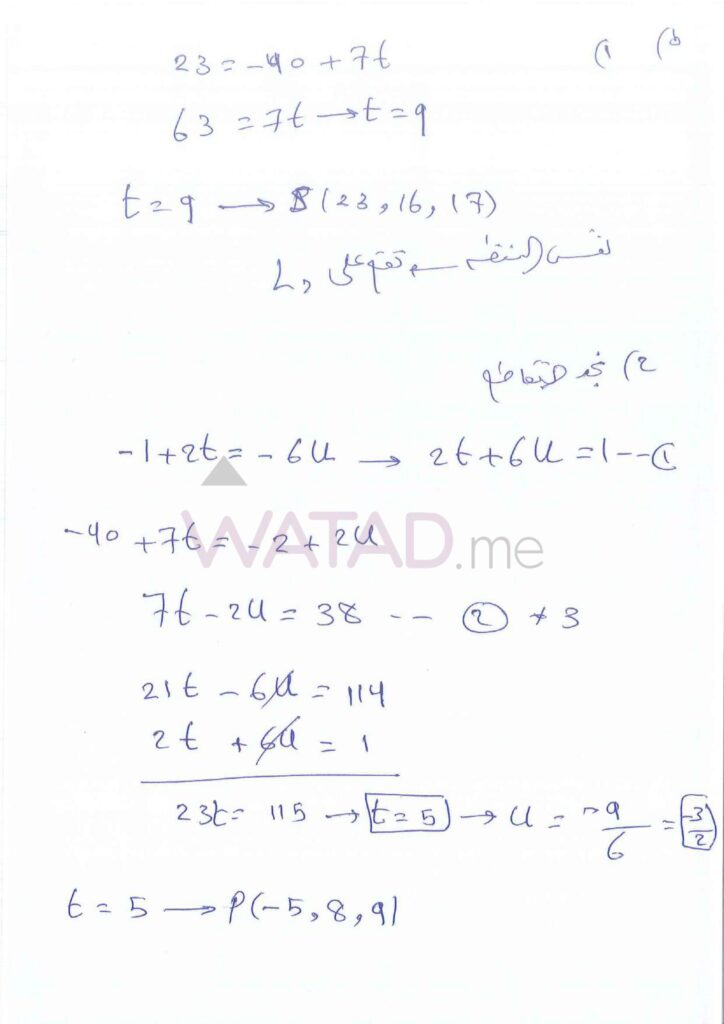 ب) 1)
23 = -40 + 7t
63 = 7t → t = 9
t = 9 → B(23, 16, 17)
نفس النقطه → تقع على L₁
2) نجد التقاطع
-1 + 2t = -6u → 2t + 6u = 1 -- ①
-40 + 7t = -2 + 2u
WATAD.me
7t - 2u = 38 -- ② * 3
21t - 6u = 114
2t + 6u = 1
23t = 115 → t = 5 → u = -9/6 = -3/2
t = 5 → P(-5, 8, 9)